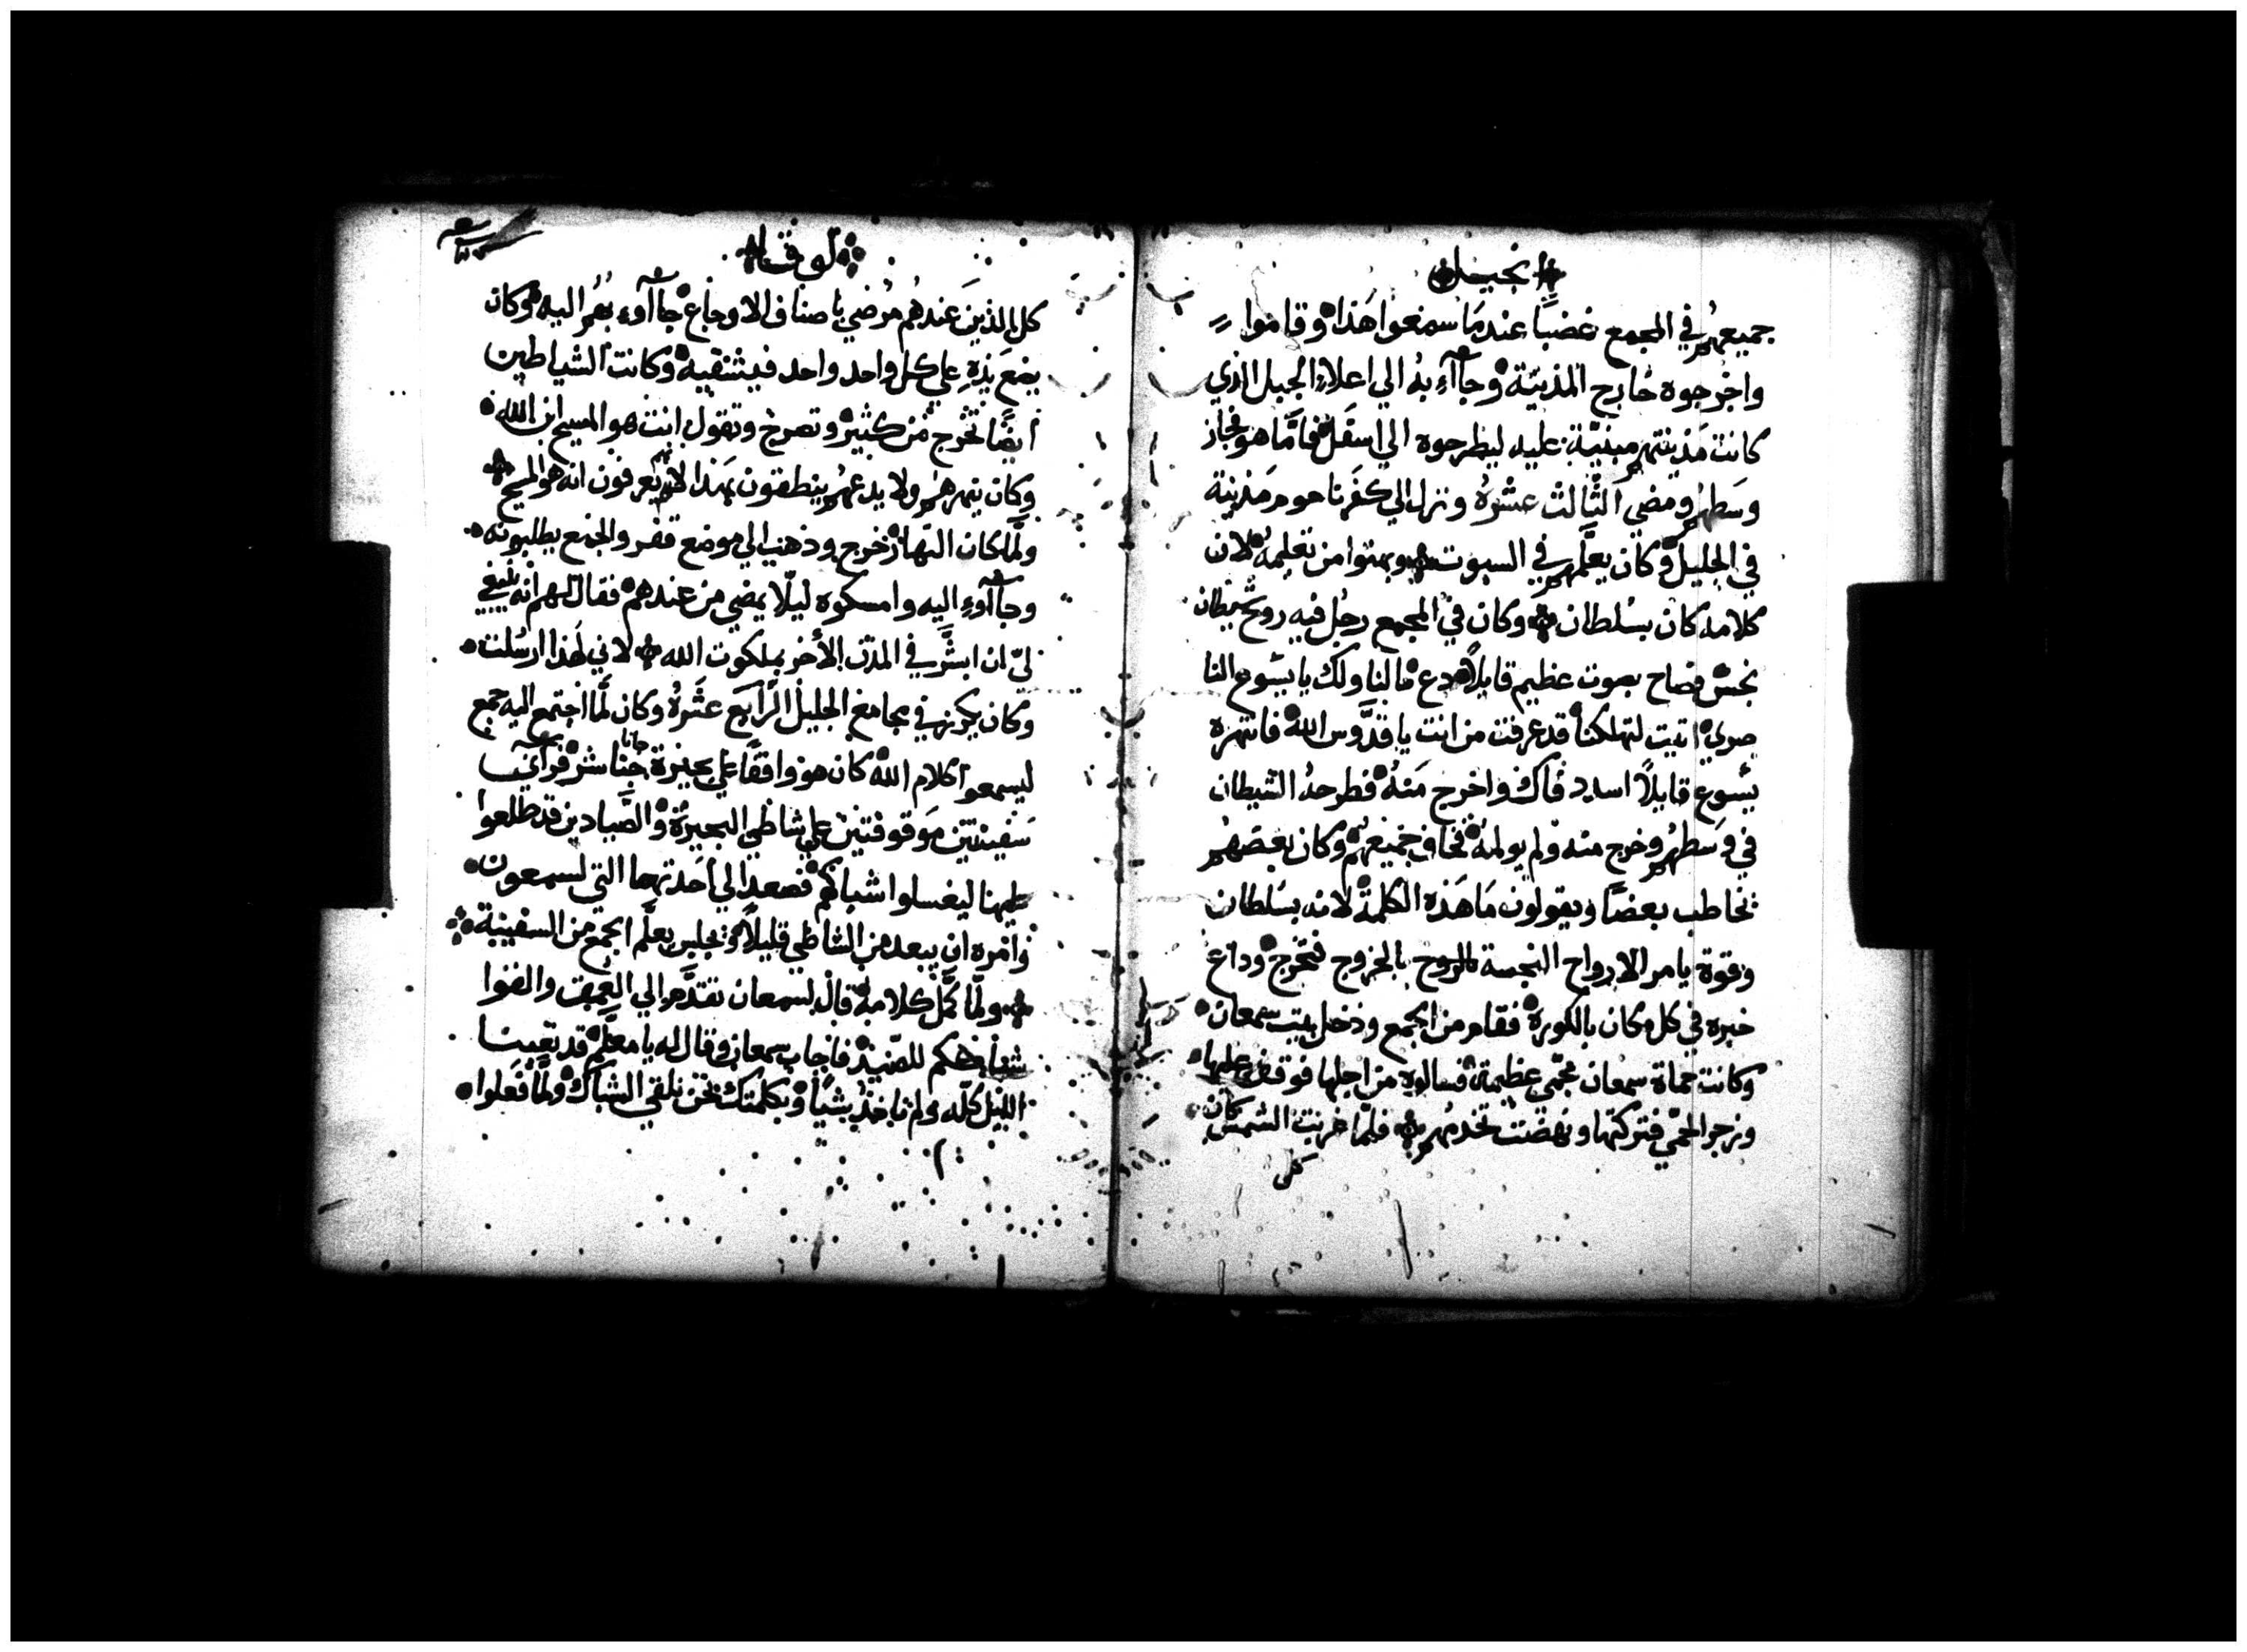 انجيل
جميعهم في المجمع غضبًا عندما سمعوا هذا وقاموا
واخرجوه خارج المدينة وجاآء به الي اعلاء الجبل الذي
كانت مدينتهم مبنيّة عليه ليطرحوه الي اسفل فامّا هو فجاز
وسطهم ومضي الثالث عشره ونزل الي كفرناحوم مدينة
في الجليل وكان يعلّمهم في السبوت وبهتوا من تعليمه لان
كلامه كان بسلطان وكان في المجمع رجل فيه روح شيطان
نجس فصاح بصوت عظيم قايلًا دع ما لنا ولك يا يسوع النا
صري اتيت لتهلكنا قد عرفت من انت يا قدّوس الله فانتهره
يسوع قايلًا اسدد فاك واخرج منه فطرحه الشيطان
في وسطهم وخرج منه ولم يولمه فخاف جميعهم وكان بعضهم
تخاطب بعضًا ويقولون ما هذه الكلمة لانه بسلطان
وقوة يامر الارواح النجسة بالخروج فتخرج وداع
خبره في كل مكان بالكورة فقام من المجمع ودخل بيت سمعان
وكانت حماة سمعان بحمّي عظيمة فسالوه من اجلها فوقف عليها
وزجر الحمّي فتركتها ونهضت تخدمهم فلمّا غربت الشمس كان
كل
لوقا
كل الذين عندهم مرضي باصناف الاوجاع جاآوء بهم اليه وكان
يضع يده علي كل واحد واحد فيشفيه وكانت الشياطين
ايضًا تخرج من كثير وتصرخ وتقول انت هو المسيح ابن الله
وكان ينهرهم ولا يدعهم ينطقون بهذا لانهم يعرفون انه هو المسيح
ولمّا كان النهار خرج وذهب الي موضع قفر والجمع يطلبونه
وجاآوء اليه وامسكوه ليلّا يمضي من عندهم فقال لهم انه ينبغي
ليّ ان ابشّر في المدن الأخر بملكوت الله لاني لهذا ارسلت
وكان يكرز في مجامع الجليل الرابع عشره وكان لمّا اجتمع اليه جمع
ليسمعوا كلام الله كان هو واقفًا علي بحيرة جناشر فرآي
سفينتين موقوفتين علي شاطي البحيرة والصّيادين قد طلعوا
ليغسلوا شباكهم فصعد الي احدتهما التي لسمعون
وامره ان يبعد من الشاطي قليلًا وجلس يعلّم الجمع من السفينة
ولمّا كمّل كلامه قال لسمعان تقدّم الي العمق والقوا
شباككم للصّيد فاجاب سمعان وقال له يا معلّم قد تعبنا
الليل كلّه ولم ناخذ شيًا وبكلمتك نحن نلقي الشباك ولمّا فعلوا